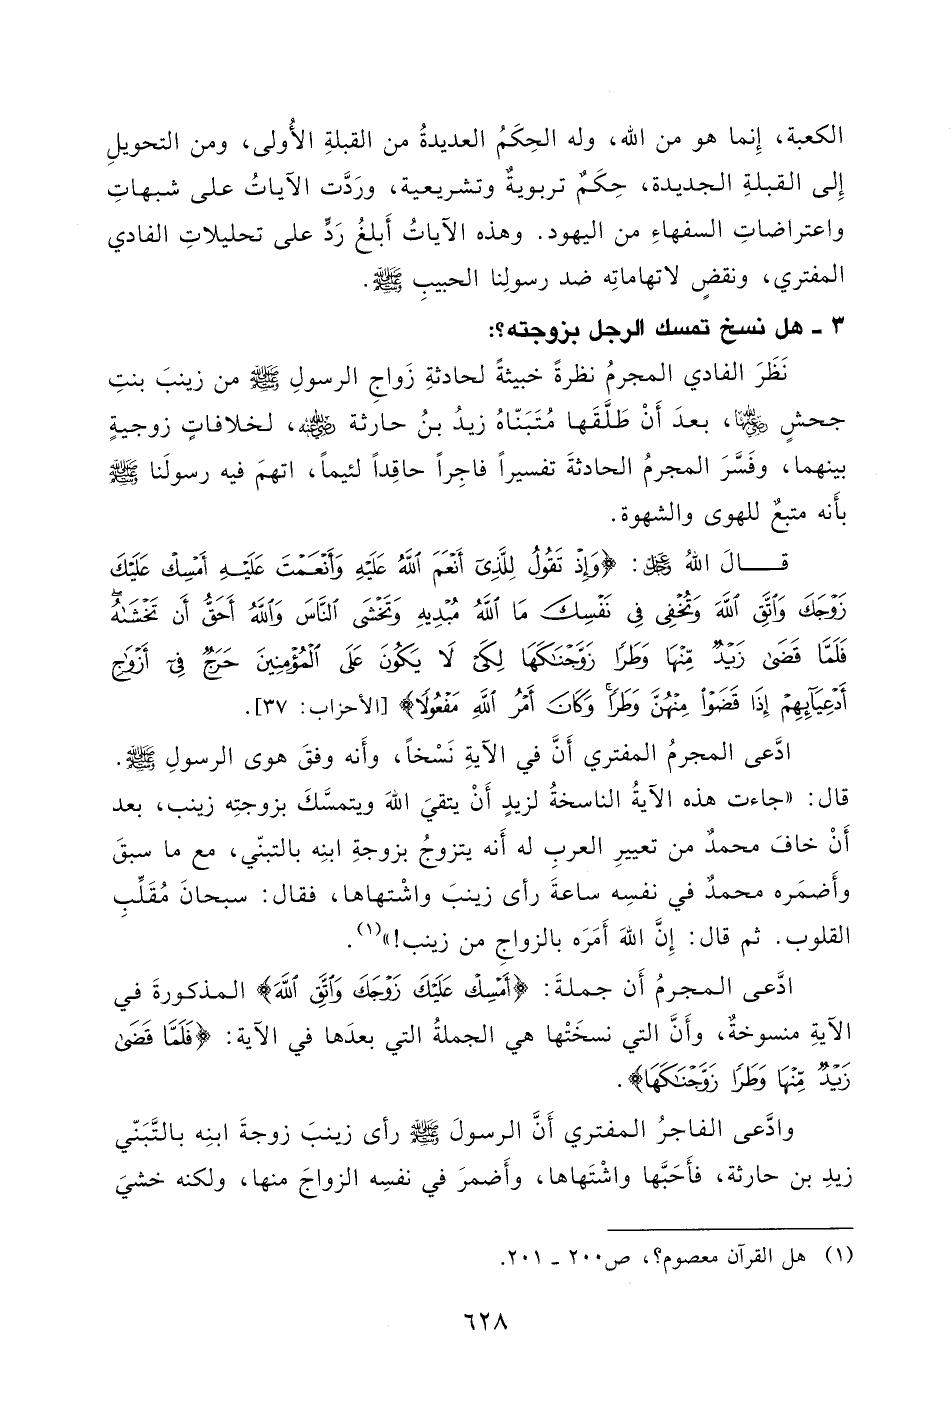 الكعبة، إِنما هو من الله، وله الحِكَمُ العديدةُ من القبلةِ الأُولى، ومن التحويلِ
إِلى القبلةِ الجديدة، حِكَمٌ تربويةٌ وتشريعية، ورَدَّت الآياتُ على شبهاتِ
واعتراضاتِ السفهاءِ من اليهود. وهذه الآياتُ أَبلغُ رَدٍّ على تحليلاتِ الفادي
المفتري، ونقضٍ لاتهاماتِه ضد رسولِنا الحبيبِ ﷺ.
٣ ـ هل نسخ تمسك الرجل بزوجته؟:
نَظَرَ الفادي المجرمُ نظرةً خبيثةً لحادثةِ زَواجِ الرسولِ ﷺ من زينبَ بنتِ
جحشٍ رضي الله عنها، بعدَ أَنْ طَلَّقَها مُتَبَنّاهُ زيدُ بنُ حارثة رضي الله عنه، لخلافاتٍ زوجيةٍ
بينهما، وفَسَّرَ المجرمُ الحادثةَ تفسيراً فاجِراً حاقِداً لئيماً، اتهمَ فيه رسولَنا ﷺ
بأَنه متبعٌ للهوى والشهوة.
قــــالَ اللهُ عز وجل: ﴿وَإِذْ تَقُولُ لِلَّذِىٓ أَنْعَمَ ٱللَّهُ عَلَيْهِ وَأَنْعَمْتَ عَلَيْهِ أَمْسِكْ عَلَيْكَ
زَوْجَكَ وَٱتَّقِ ٱللَّهَ وَتُخْفِى فِى نَفْسِكَ مَا ٱللَّهُ مُبْدِيهِ وَتَخْشَى ٱلنَّاسَ وَٱللَّهُ أَحَقُّ أَن تَخْشَىٰهُ ۖ
فَلَمَّا قَضَىٰ زَيْدٌ مِّنْهَا وَطَرًا زَوَّجْنَٰكَهَا لِكَىْ لَا يَكُونَ عَلَى ٱلْمُؤْمِنِينَ حَرَجٌ فِىٓ أَزْوَٰجِ
أَدْعِيَآئِهِمْ إِذَا قَضَوْا۟ مِنْهُنَّ وَطَرًا ۚ وَكَانَ أَمْرُ ٱللَّهِ مَفْعُولًا﴾ [الأحزاب: ٣٧].
ادَّعى المجرمُ المفتري أَنَّ في الآيةِ نَسْخاً، وأَنه وفقَ هوى الرسولِ ﷺ.
قال: «جاءت هذه الآيةُ الناسخةُ لزيدٍ أَنْ يتقيَ اللهَ ويتمسَّكَ بزوجتِه زينب، بعد
أَنْ خافَ محمدٌ من تعييرِ العربِ له أَنه يتزوجُ بزوجةِ ابنِه بالتبنّي، مع ما سبقَ
وأَضمَره محمدٌ في نفسِه ساعةَ رأى زينبَ واشْتهاها، فقال: سبحانَ مُقَلِّبِ
القلوب. ثم قال: إِنَّ اللهَ أَمَرَه بالزواجِ من زينب!»(١).
ادَّعى المجرمُ أن جملةَ: ﴿أَمْسِكْ عَلَيْكَ زَوْجَكَ وَٱتَّقِ ٱللَّهَ﴾ المذكورةَ في
الآيةِ منسوخةٌ، وأَنَّ التي نسخَتْها هي الجملةُ التي بعدَها في الآية: ﴿فَلَمَّا قَضَىٰ
زَيْدٌ مِّنْهَا وَطَرًا زَوَّجْنَٰكَهَا﴾.
وادَّعى الفاجرُ المفتري أَنَّ الرسولَ ﷺ رأى زينبَ زوجةَ ابنِه بالتَّبَنّي
زيدِ بن حارثة، فأَحَبَّها واشْتَهاها، وأَضمرَ في نفسِه الزواجَ منها، ولكنه خشيَ
(١) هل القرآن معصوم؟، ص٢٠٠ ـ ٢٠١.
٦٢٨